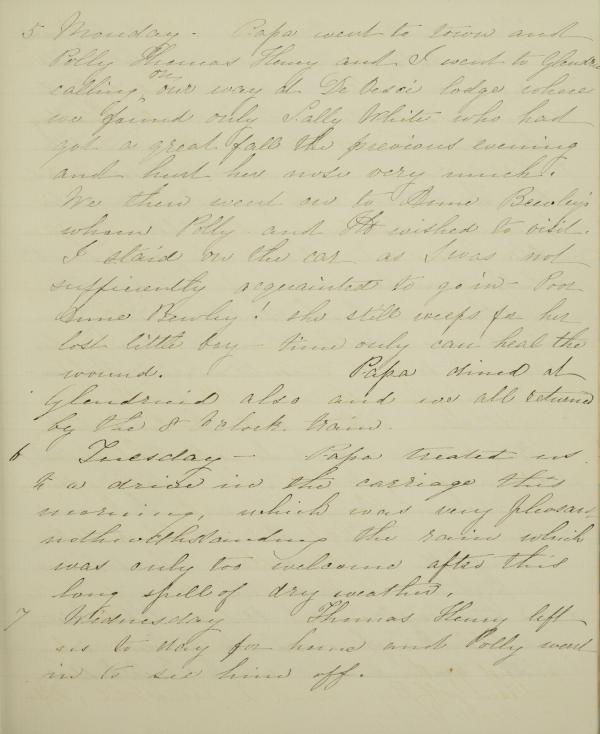 5 Monday - Papa went to town and
Polly Thomas Henry and I went to Glendru
calling on our way at De Vesci lodge where
we found only Sally White who had
got a great fall the previous evening
and hurt her nose very much.
We then went on to Anne Bewley's
whom Polly and TH wished to visit.
I staid on the car as I was not
sufficiently acquainted to go in - Poor
Anne Bewley! she still weeps for her
lost little boy - time only can heal the
wound. Papa dined at
Glendruid also and we all returned
by the 8 o'clock train.
6 Tuesday - Papa treated us
to a drive in the carriage this
morning, which was very pleasan
nothwithstanding the rain which
was only too welcome after this
long spell of dry weather.
7 Wednesday Thomas Henry left
us to day for home and Polly went
in to see him off.